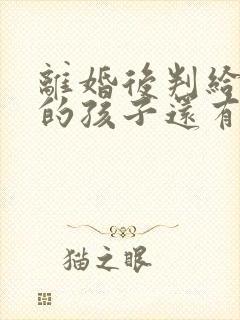 離婚後判給
的孩子還有
貓之眼